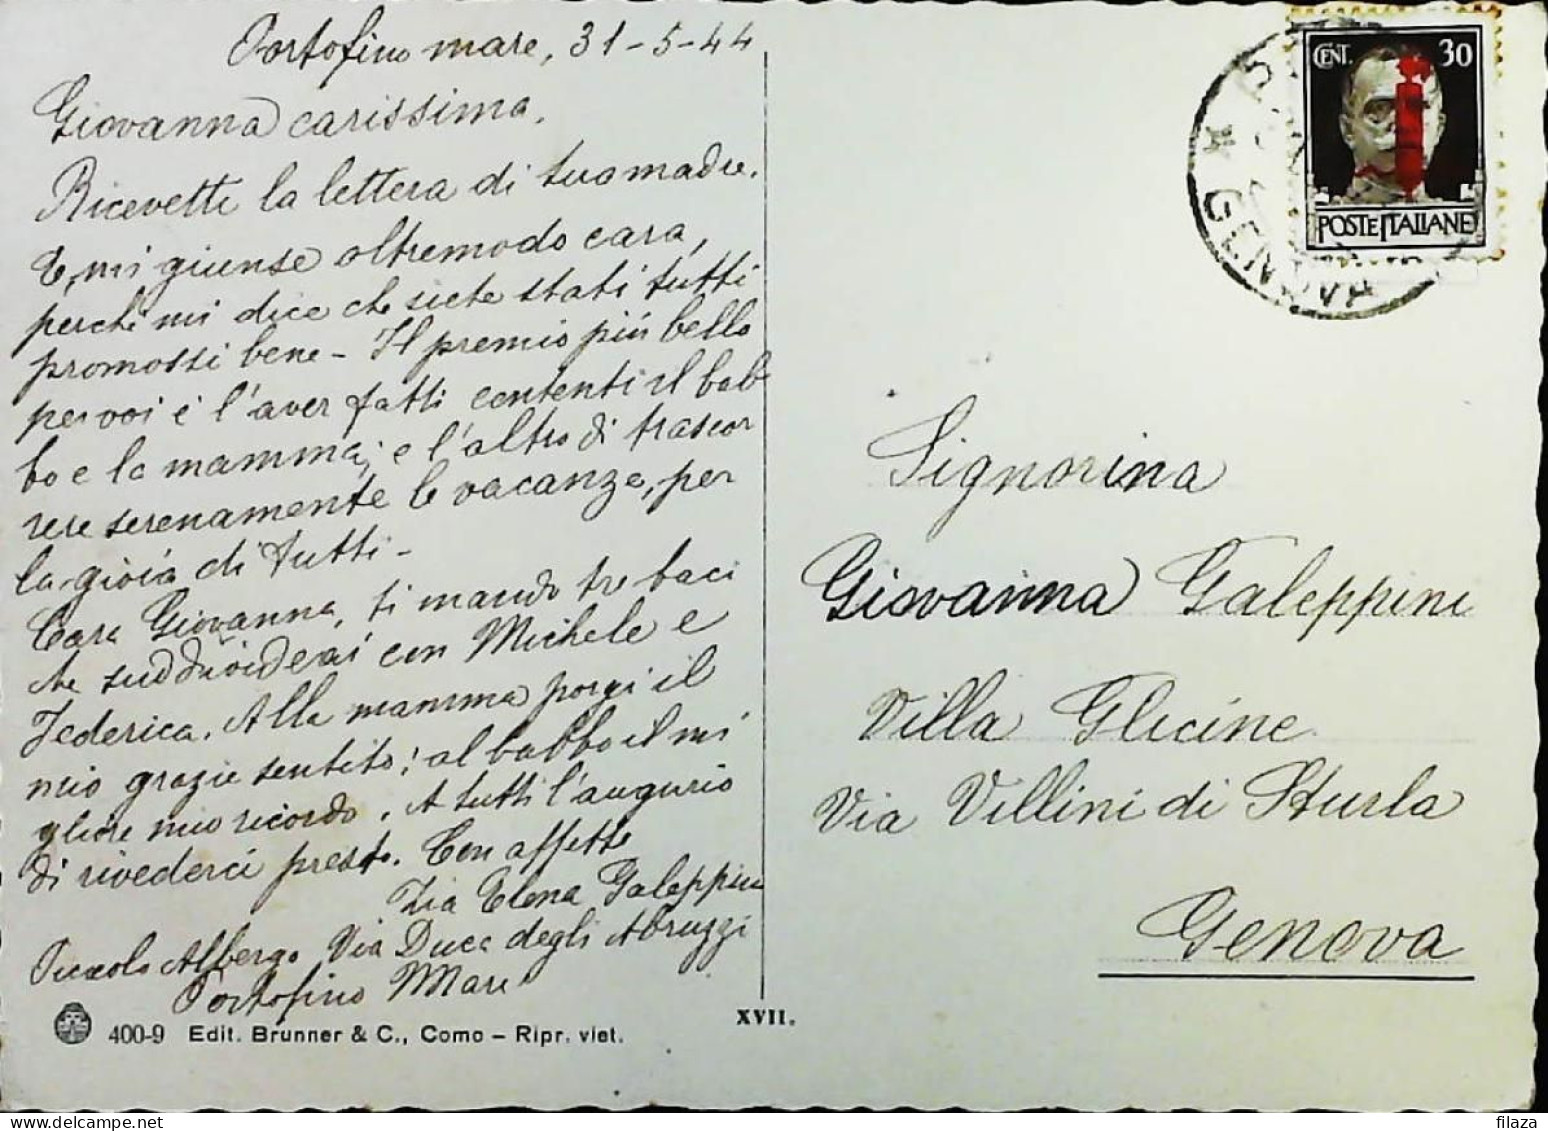 Portofino mare, 31-5-44
Giovanna carissima,
Ricevetti la lettera di tua madre.
E, mi giunse oltremodo cara,
perchè mi dice che siete stati tutti
promossi bene - Il premio più bello
per voi è l'aver fatti contenti il bab-
bo e la mamma; e l'altro di trascor
rere serenamente le vacanze, per
la gioia di tutti -
Cara Giovanna, ti mando tre baci
che suddividerai con Michele e
Federica. Alla mamma porgi il
mio grazie sentito; al babbo il mi
gliore mio ricordo. A tutti l'augurio
di rivederci presto. Con affetto
Zia Elena Galeppini
Piccolo Albergo Via Duca degli Abruzzi
Portofino Mare
400-9 Edit. Brunner & C., Como - Ripr. viet.
XVII.
CENT. 30
POSTE ITALIANE
GENOVA
Signorina
Giovanna Galeppini
Villa Glicine
Via Villini di Sturla
Genova
© filaza